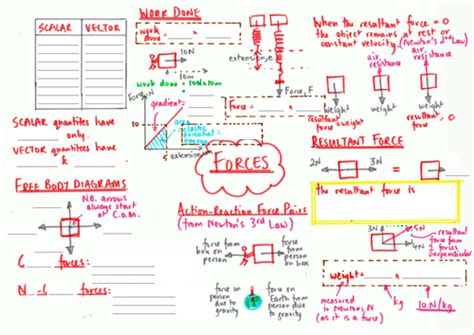 SCALAR
VECTOR
SCALAR quantities have
only.
VECTOR quantities have
&
FREE BODY DIAGRAMS
N.B. arrows
always start
at C.O.M.
C forces:
N -C forces:
WORK DONE
work done = x
10N
10m
work done = 10N x 10m
Force, N
gradient=
10
area
elastic
potential
energy
5
extension,
extension, e
Force, F
Force = x
FORCES
Action-Reaction Force Pairs
(from Newton's 3rd Law)
force from
box on
person
force from
person on
box
force on
person
due to
gravity
force on
Earth from
person due
to gravity
When the resultant force = 0
the object remains at rest or
constant velocity. (Newton's 2nd Law)
air
resistance
air
resistance
weight
weight
weight
resultant
force = weight
resultant
force =
resultant
force = 0
RESULTANT FORCE
2N
3N
=
the resultant force is
3N
5N
4N
resultant
force from
2 forces
perpendicular
weight = x
measured
in Newtons, N
(as it is a force)
kg
N/kg
10 N/kg